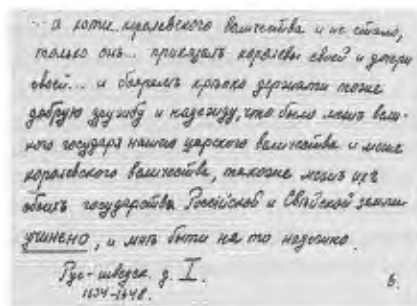 ... а хотя королевского величества и не стало,
только онъ... приказалъ королевы своей и дочери
своей... и бояромъ крѣпко держати тоже
добрую дружбу и надежду, что было межъ вели-
кого государя нашего царского величества и межъ
королевского величества, такоже межъ ихъ
обоихъ государства Россійской и Свѣйской земли
учинено, и мнѣ быти на то надежно.
Рус-шведск. д. I.
1634-1648.
6.